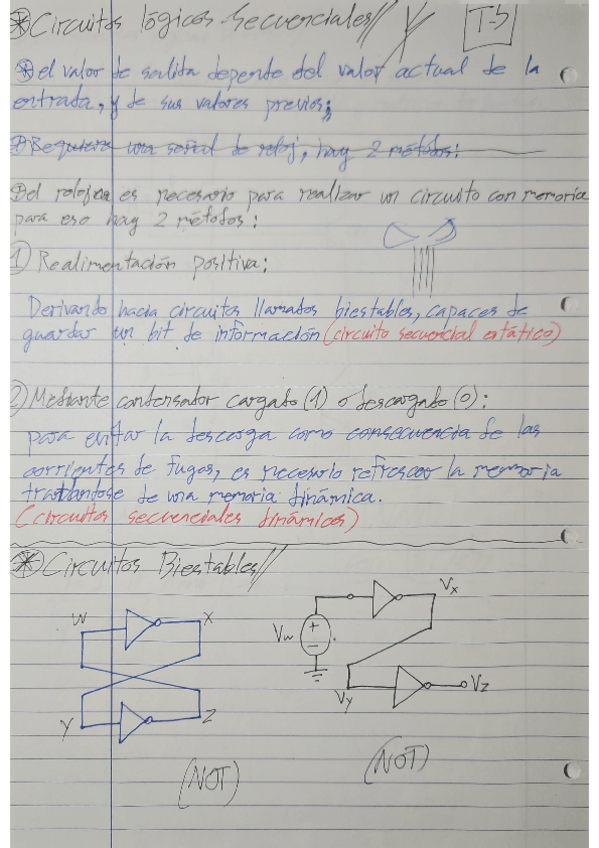 * Circuitos lógicos secuenciales// T-5
* el valor de salida depende del valor actual de la
entrada, y de sus valores previos;
* Requiere una señal de reloj, hay 2 métodos:
es necesario para realizar un circuito con memoria
para eso hay 2 métodos:
1) Realimentación positiva:
Derivando hacia circuitos llamados biestables, capaces de
guardar un bit de información (circuito secuencial estático)
2) Mediante condensador cargado (1) o descargado (0):
para evitar la descarga como consecuencia de las
corrientes de fugas, es necesario refrescar la memoria
tratándose de una memoria dinámica.
(circuitos secuenciales dinámicos)
* Circuitos Biestables//
W X
Y Z
(NOT)
Vx
Vw + -
Vy Vz
(NOT)